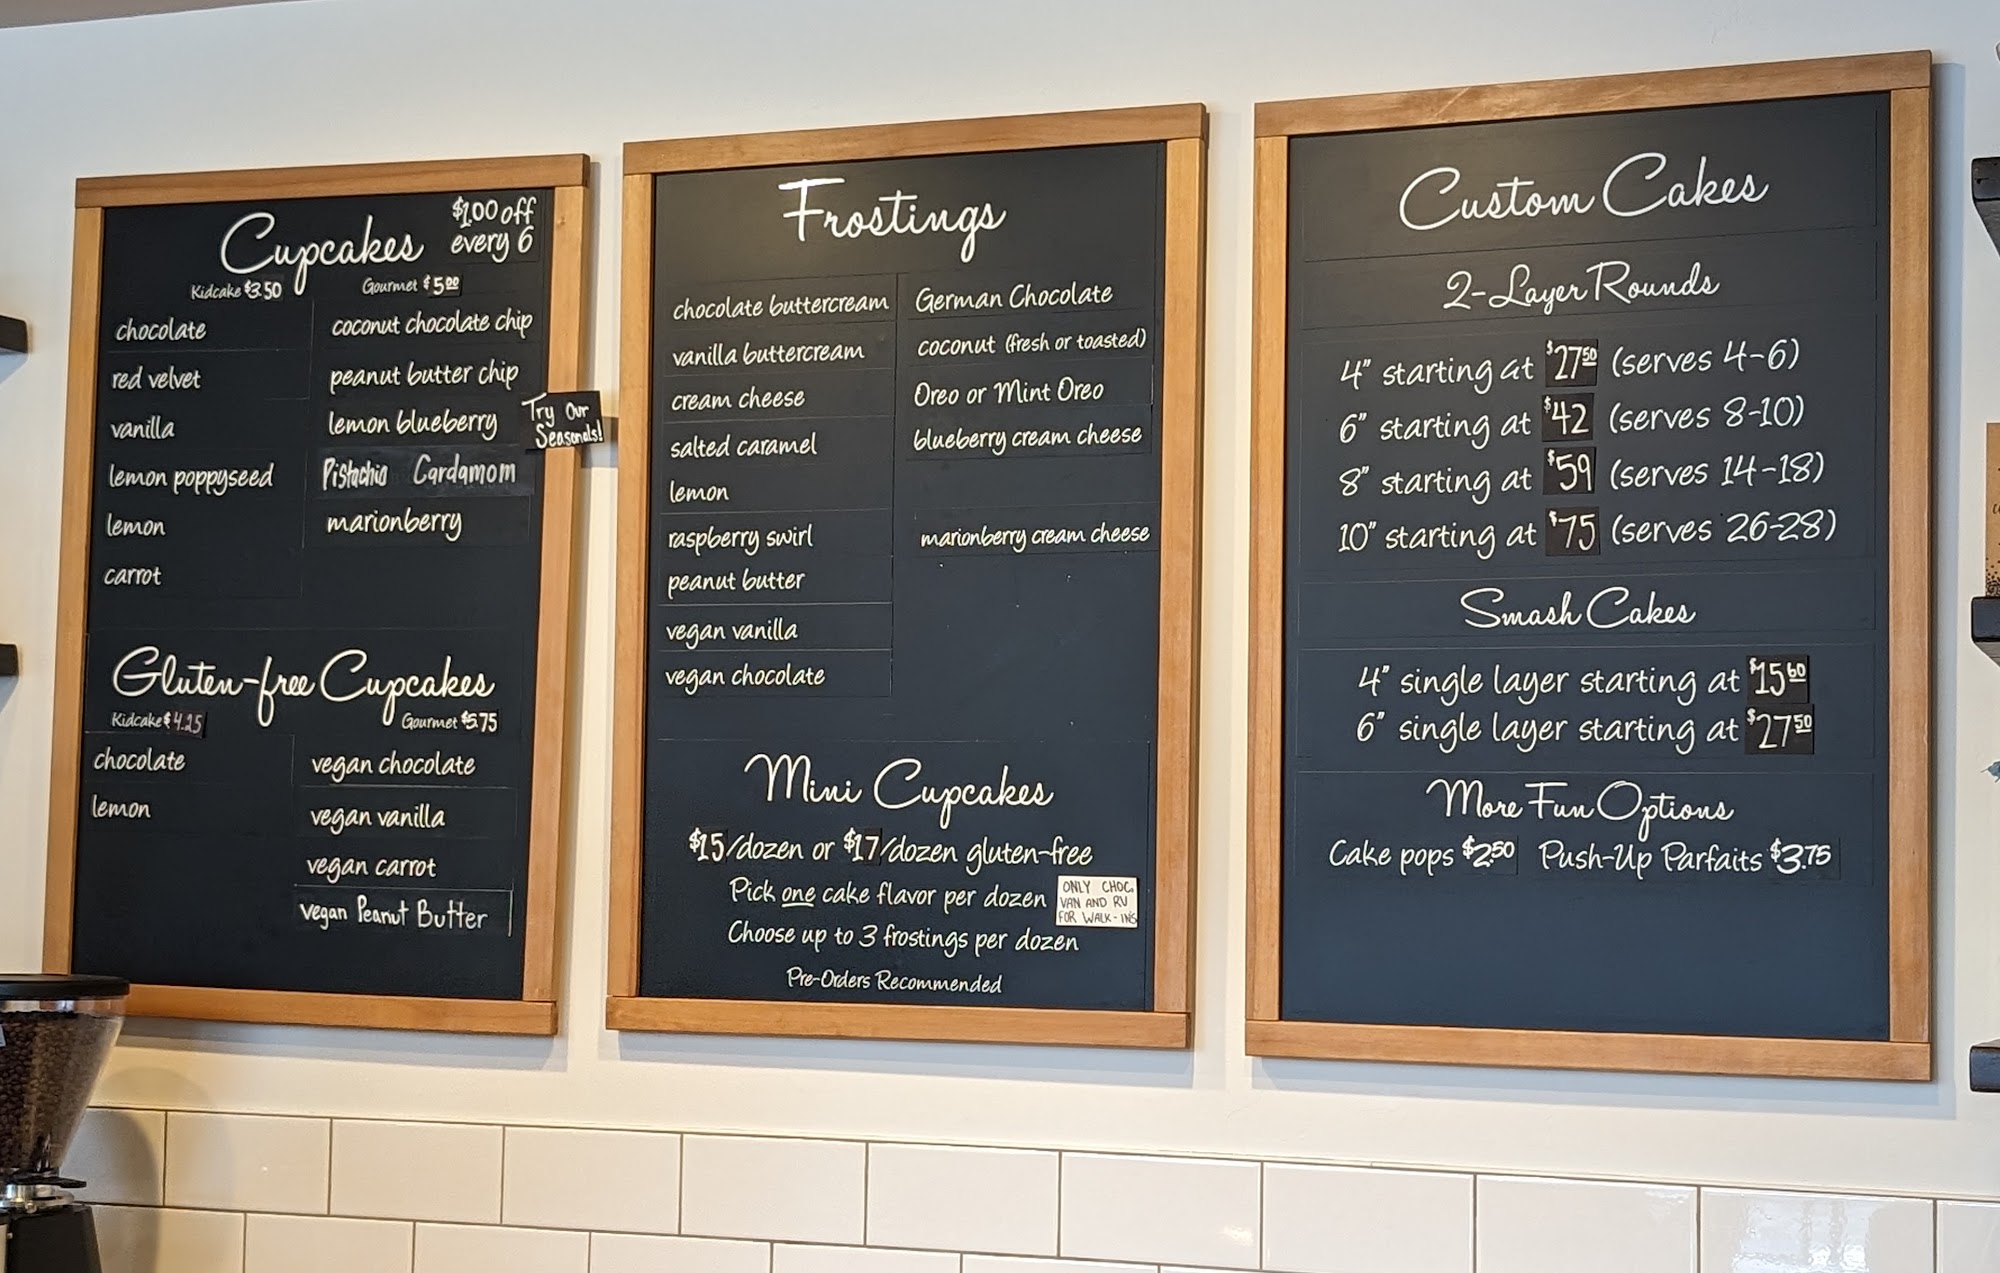 Cupcakes
$1.00 off
every 6
Kidcake $3.50
Gourmet $5.00
chocolate
red velvet
vanilla
lemon poppyseed
lemon
carrot
coconut chocolate chip
peanut butter chip
lemon blueberry
Pistachio Cardamom
marionberry
Try Our
Seasonals!
Gluten-free Cupcakes
Kidcake $4.25
Gourmet $5.75
chocolate
lemon
vegan chocolate
vegan vanilla
vegan carrot
vegan Peanut Butter
Frostings
chocolate buttercream
vanilla buttercream
cream cheese
salted caramel
lemon
raspberry swirl
peanut butter
vegan vanilla
vegan chocolate
German Chocolate
coconut (fresh or toasted)
Oreo or Mint Oreo
blueberry cream cheese
marionberry cream cheese
Mini Cupcakes
$15/dozen or $17/dozen gluten-free
Pick one cake flavor per dozen
ONLY CHOC,
VAN AND RV
FOR WALK-INS
Choose up to 3 frostings per dozen
Pre-Orders Recommended
Custom Cakes
2-Layer Rounds
4" starting at $27.50 (serves 4-6)
6" starting at $42 (serves 8-10)
8" starting at $59 (serves 14-18)
10" starting at $75 (serves 26-28)
Smash Cakes
4" single layer starting at $15.60
6" single layer starting at $27.50
More Fun Options
Cake pops $2.50 Push-Up Parfaits $3.75